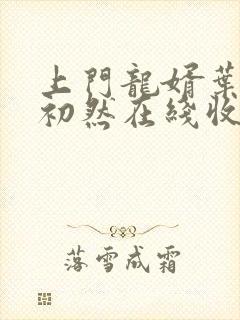 上門龍婿葉
初然在綫收
落雪成霜